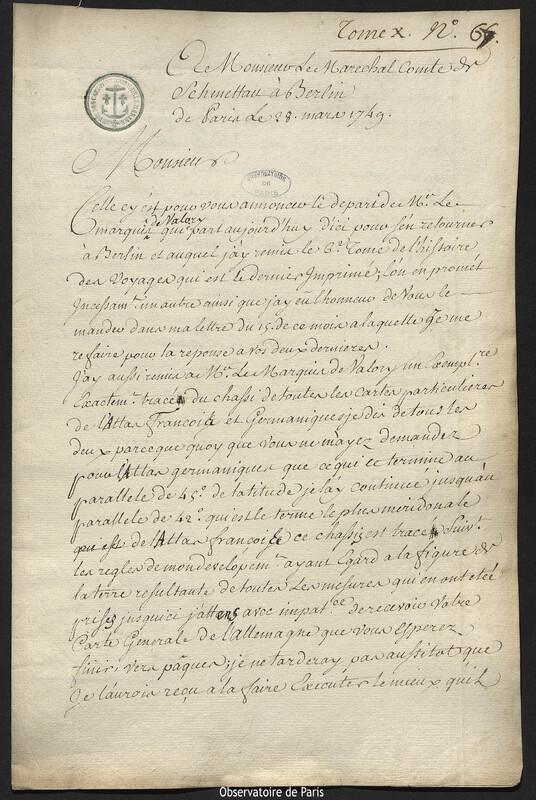 Tome X. N.° 66.
De Monsieur Le Marechal Comte de
Schmettau à Berlin
de Paris Le 28. mars 1749.
Monsieur
OBSERVATOIRE
DE
PARIS
Celle cy est pour vous annoncer le depart de Mr. Le
marquis de Valory qui part aujourd'huy d'ici pour s'en retourner
à Berlin et auquel j'ay remis le 6.e Tome de l'histoire
des Voyages qui est le dernier Imprimé; l'on en promêt
Incessam.t un autre ainsi que jay eu l'honneur de Vous le
mander dans ma lettre du 15. de ce mois a laquelle Je me
refaire pour la reponse a vos deux dernieres.
J'ay aussi remis a Mr. Le Marquis de Valory un Exempl.re
Exactem.t tracé du chassi de toutes les cartes particulieres
de l'Atlas François et Germaniques je dis de tous les
deux parceque quoy que vous ne m'ayez demandez
pour l'Atlas germaniques que ce qui ce termine au
parallele de 45.° de latitude je l'ay continué jusqu'au
parallele de 42.° qui est le terme le plus meridionale
de l'Atlas françois ce chassis est tracé suiv.t
les regles de mon developem.t ayant Egard a la figure de
la terre resultante de toutes Les mesures qui en ont eteé
prises jusqu'ici j'attens avec impat.ce de recevoir Votre
Carte Generale de l'allemagne que vous Esperez
finir vers pâques; je ne tarderay pas aussitot que
Je l'aurois reçu a la faire Executer le mieux qu'il
Observatoire de Paris